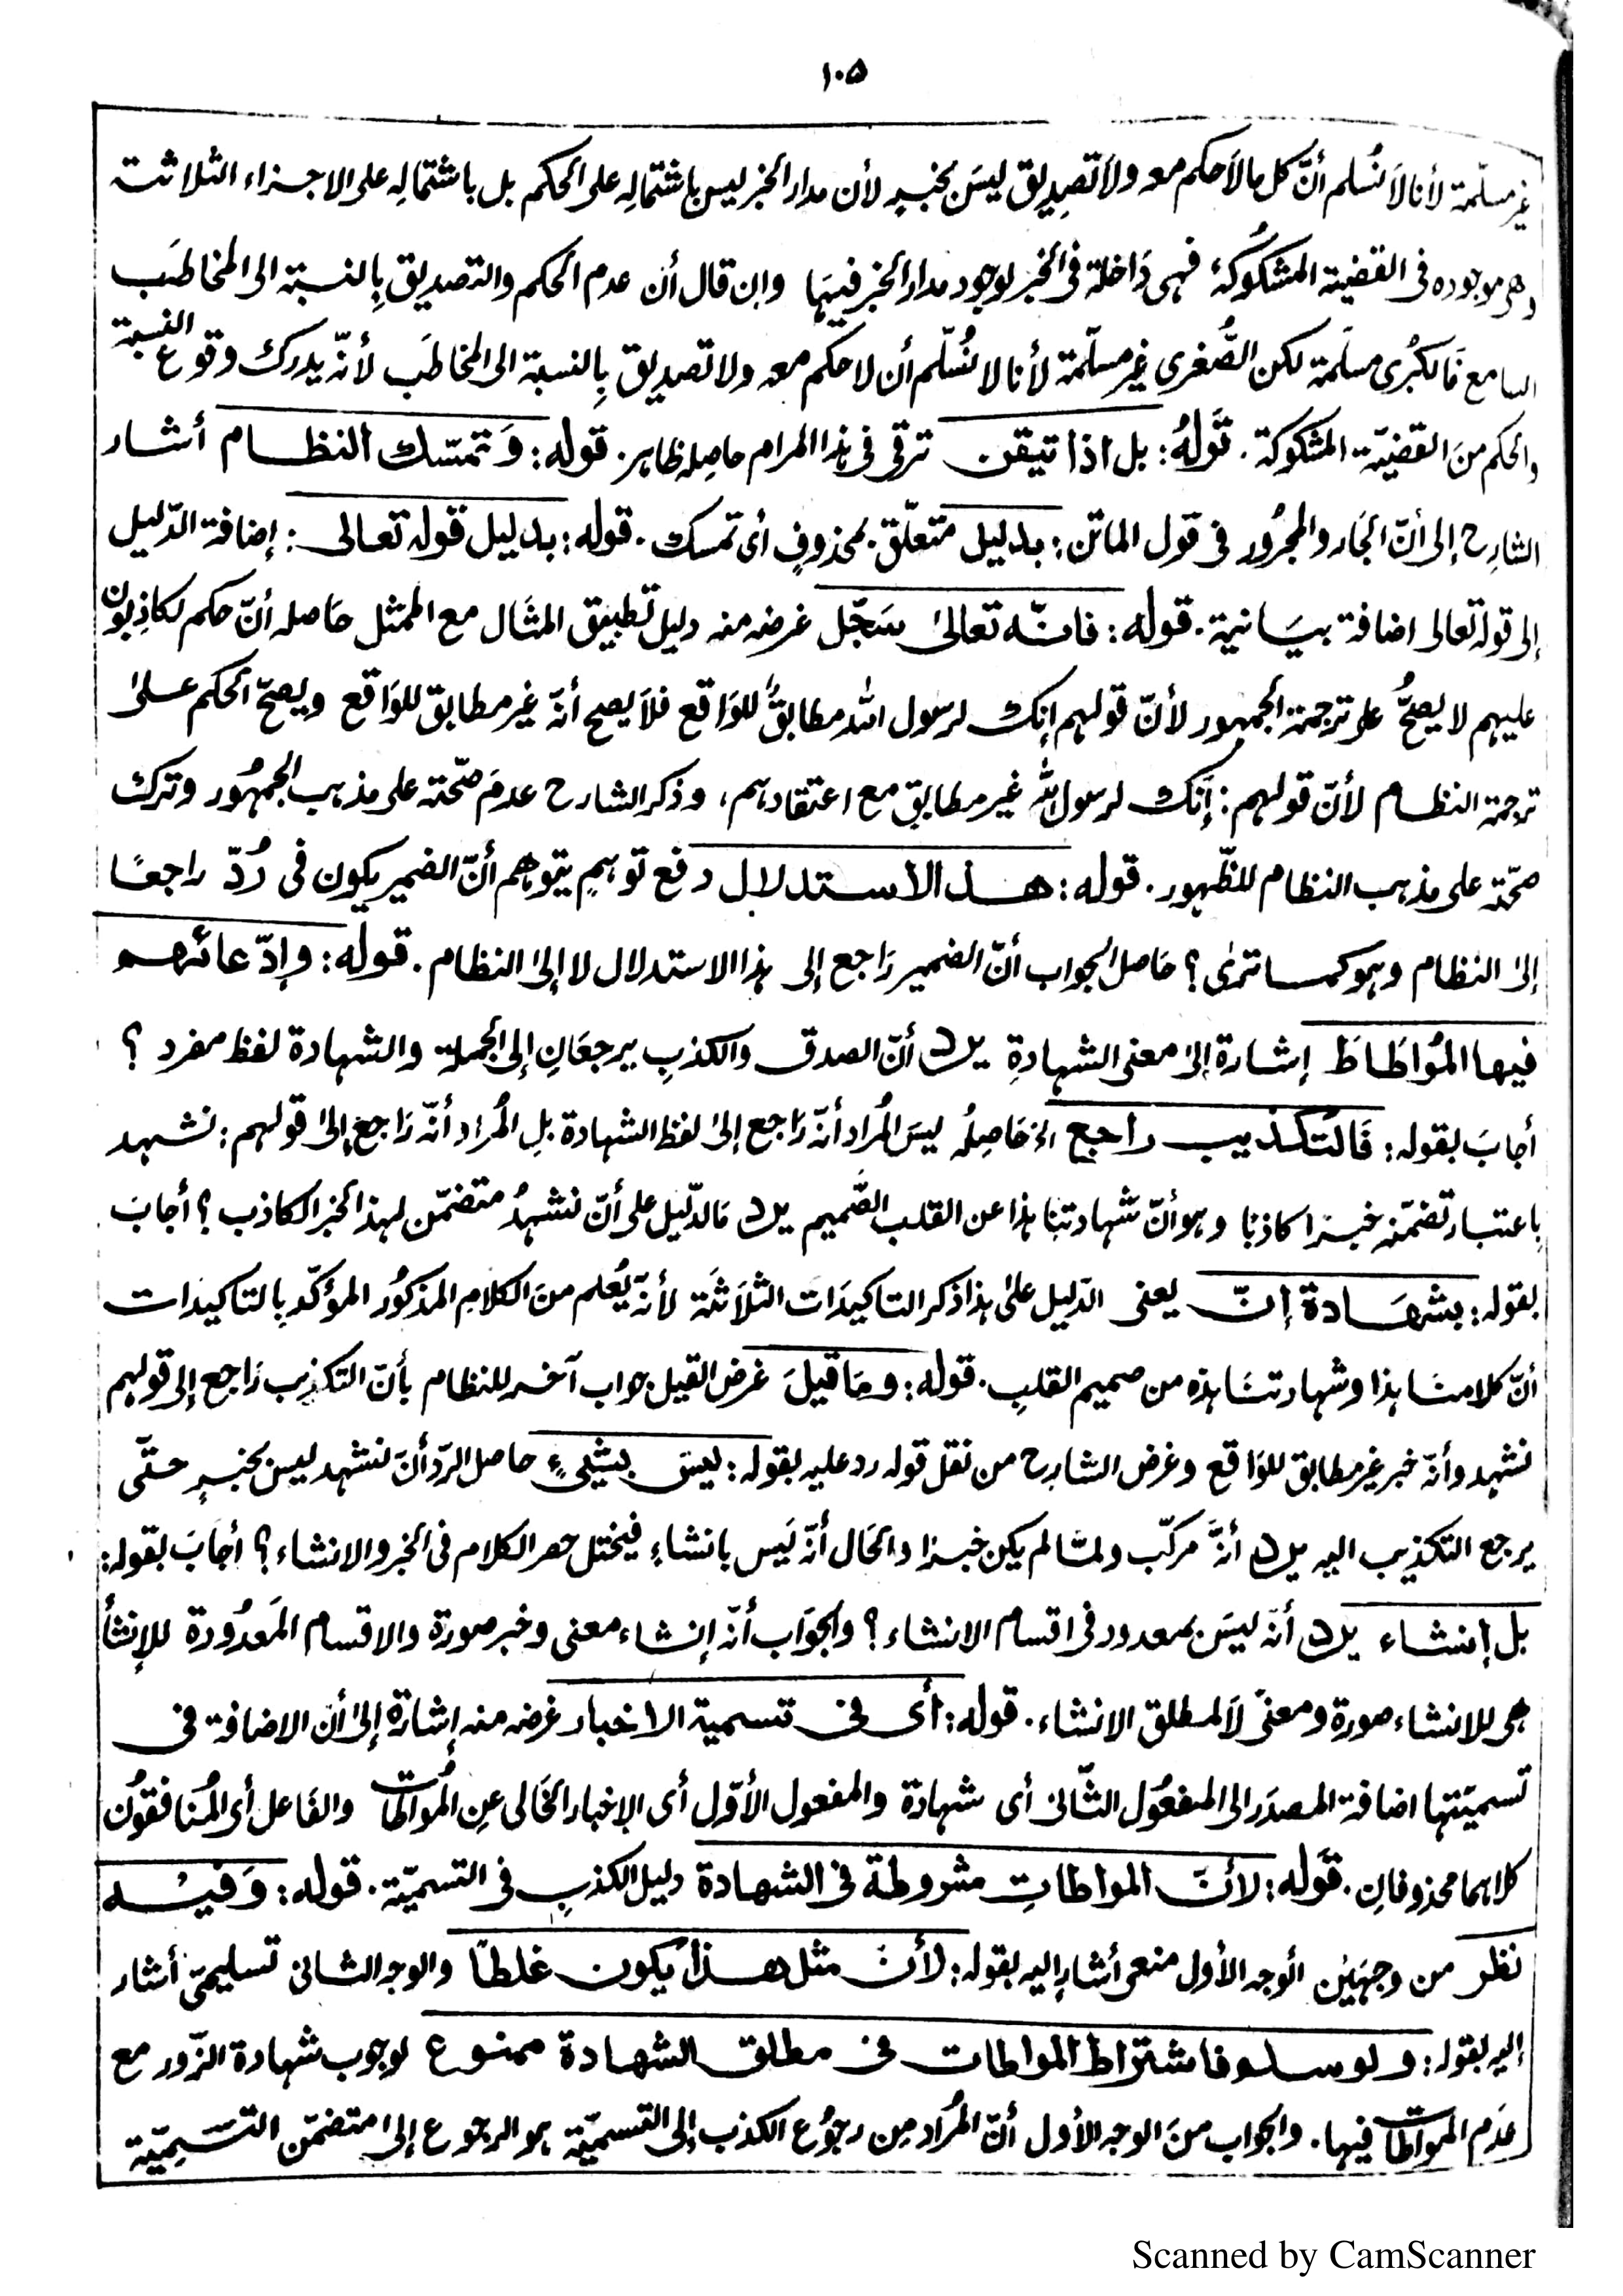 ١٠٥
غير مسلّمة لأنا لَا نُسلم أنّ كل ما لَا حكم معه ولَا تصدِيق ليسَ بخبرٍ لأن مدار الخبر ليس باشتمالِه على الحكم بل باشتمالِه على الاجزاء الثلاثة
وهى موجوده فى القضية المشكُوكة فهى دَاخلة فى الخبر لوجود مدار الخبر فيهَا وإن قال أن عدم الحكم والتصديق بِالنسبة الى المخاطَب
السامع فَالكبرُى مسلّمة لكن الصُّغرى غير مسلّمة لأنا لا نُسلّم أن لا حكم معه ولا تصديق بِالنسبة الى المخاطَب لأنّه يدرك وقوع النسبة
والحكم منَ القضيّة المشكوكة. قَولهُ: بل اذا تيقن ترقى فى هذا المرام حاصِله ظاهر. قوله: وَتمسّك النظام أشار
الشارِح إلى أنّ الجَار والمجرُور فى قول الماتن: بدليل متعلّق بمحذوفٍ أى تمسك. قوله: بدليل قوله تعالى: إضافة الدّليل
إلى قوله تعالى اضافة بيَانية. قوله: فانّه تعالىٰ سَجّل غرضه منه دليل تطبيق المثَال مع الممثل حَاصله أنّ حكم لكاذِبون
عليهم لا يصحُّ على ترجمة الجمهور لأنّ قولهم إنك لرسول الله مطابقٌ للوَاقع فلَا يصح أنّه غير مطابق للوَاقع ويصحّ الحكم علىٰ
ترجمة النظام لأنّ قولهم: إنّك لرسول الله غير مطابق مع اعتقادهم، وذكر الشارح عدمَ صحّته على مذهب الجمهُور وترك
صحّته على مذهب النظام للظّهور. قوله: هذا الاستدلال دفع توهمٍ يتوهم أنّ الضمير يكون فى رُدّ راجعًا
إلىٰ النظام وهو كما ترىٰ؟ حَاصل الجواب أنّ الضمير رَاجع إلى هذا الاستدلال لا إلىٰ النظام. قوله: وإدّعائهم
فيها المُواطَاطَ إشارة إلىٰ معنى الشهادةِ يرد أنّ الصدق والكذبِ يرجعَانِ إلى الجملة والشهادة لفظ مفرد؟
أجابَ بقوله: فَالتكذيب راجع الخ حَاصِلُه ليسَ المُراد أنّه رَاجع إلىٰ لفظ الشهادة بلِ المُرَاد أنّه رَاجع إلىٰ قولهم: نشهد
بِاعتبار تضمّنه خبرًا كاذبًا وهو أنّ شهادتنا هذا عن القلب الصّميم يرد مَالدّليل على أنّ نشهدُ متضمّن لهذا الخبر الكاذب؟ أجابَ
بقوله: بشهَادة إنّ يعنى الدّليل علىٰ هذا ذكر التاكيدَات الثلَاثَة لأنّه يُعلم منَ الكلامِ المذكوُر المؤكّد بِالتاكيدات
أنّ كلامنَا هذا وشهادتنَا هذه من صميم القلبِ. قوله: ومَا قيلَ غرض القيل جواب آخر للنظام بأنّ التكذيب رَاجع إلى قولهم
نشهد وأنّه خبر غير مطابق للوَاقع وغرض الشارح من نقل قوله رد عليه بقوله: ليسَ بشيءٍ حاصل الردّ أنّ نشهد ليس بخبرٍ حتّى
يرجع التكذيب اليه يرد أنّهَ مركّب ولمّا لم يكن خبرًا والحَال أنّه لَيس بانشاءٍ فيختل حصر الكلام فى الخبر والانشاء؟ أجابَ بقوله:
بل إنشاء يرد أنّه ليسَ بمعدود فى اقسام الانشاء؟ والجوَاب أنّه إنشاء معنى وخبر صورة والاقسام المَعدُودة للإنشأ
هى للانشاء صورة ومعنىً لَا لمطلق الانشاء. قوله: أى فى تسمية الاخبار غرضه منه إشارة إلىٰ أن الاضافة فى
تسميّتها اضافة المصدَر الى المفعُول الثّانى أى شهادة والمفعول الأوّل أى الإخبار الخَالى عنِ المُواطات والفَاعل أى المُنَافقوُن
كلاهما محذوفانِ. قَوله: لأنّ المواطاتِ مشروطة فى الشهادة دليل الكذبِ فى التسميّة. قوله: وَفيْه
نظر من وجهَيْن الوجه الأول منعى أشار إليه بقوله: لأنَّ مثل هذا يَكون غلطًا والوجه الثانى تسليمىّ أشار
إليه بقوله: ولو سلم فاشتراط المواطات فى مطلق الشهادة ممنوع لوجوب شهادة الزّور مع
عدَم المواطات فيها. والجواب منَ الوجه الأول أنّ المُراد مِن رجوُع الكذب إلى التسميّة هو الرجوع إلىٰ متضمّن التسَمِيّة
Scanned by CamScanner